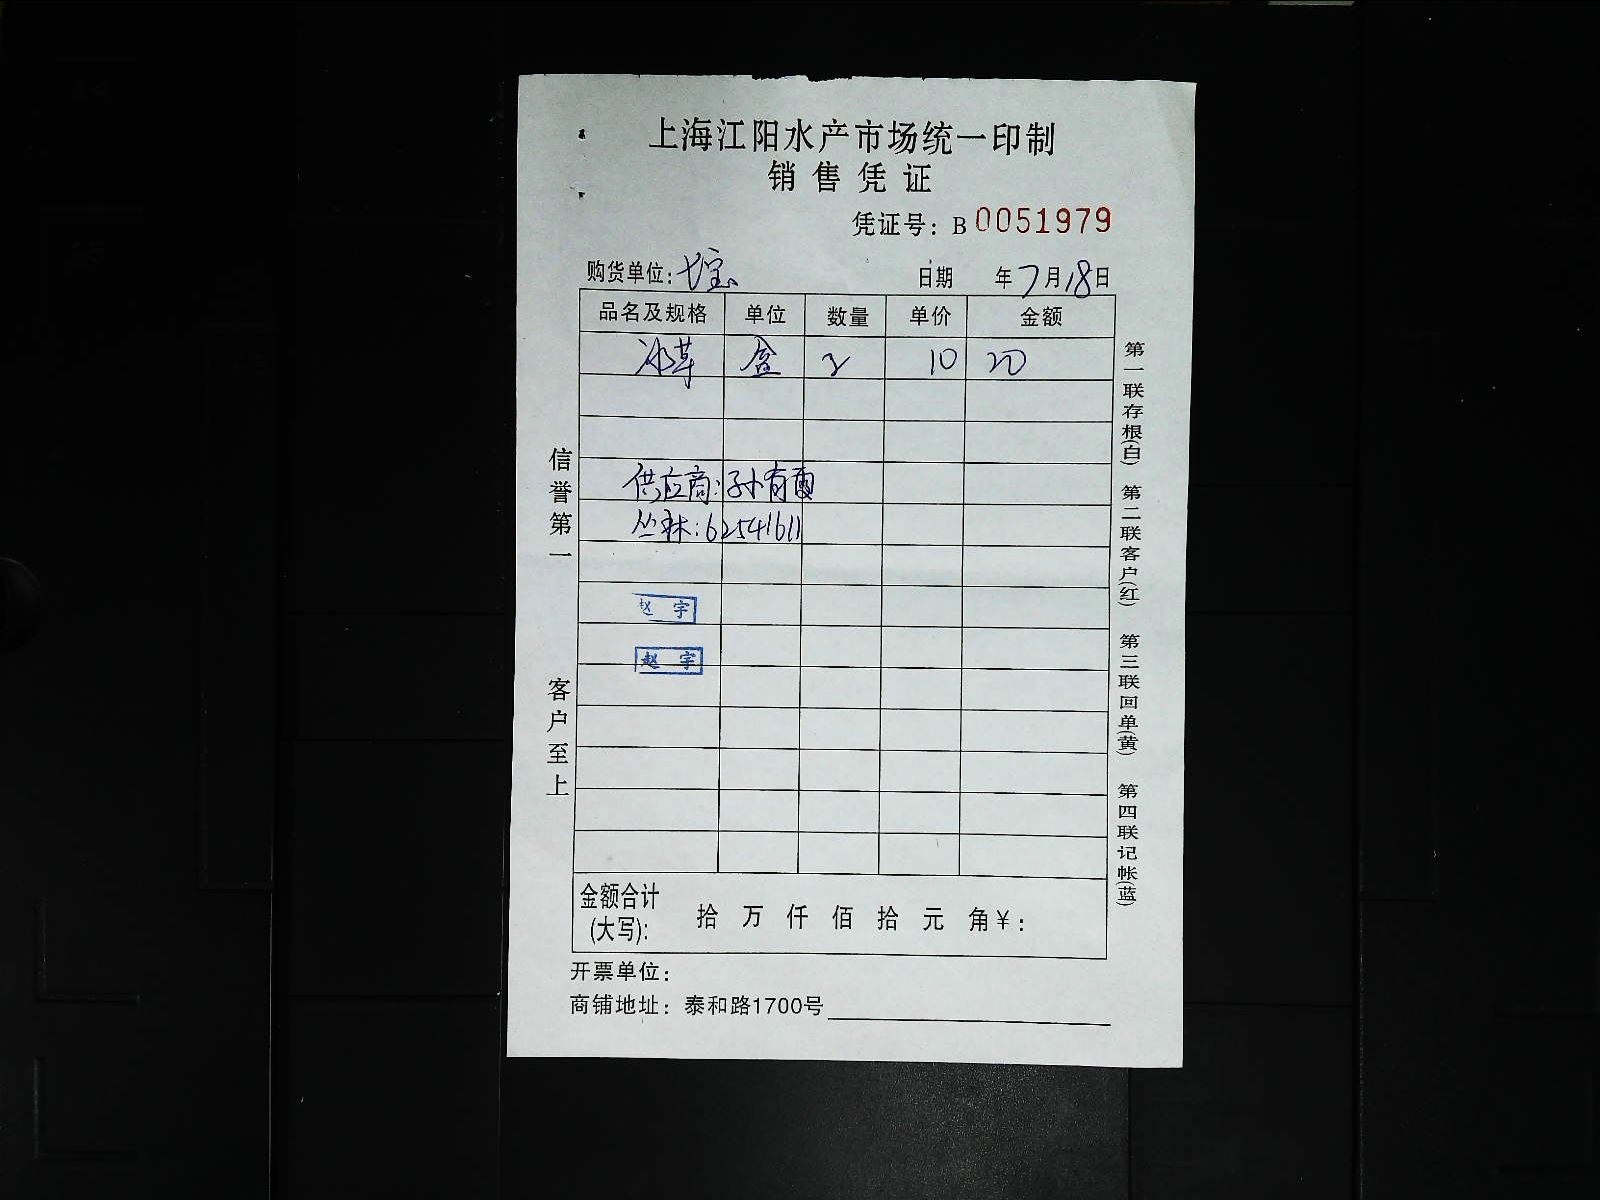 上海江阳水产市场统一印制
销售凭证
凭证号：B 0051979
购货单位：七宝 日期 年7月18日
品名及规格 单位 数量 单价 金额
冰草 盒 2 10 20
供应商：孙有
丛林：62541611
赵宇
赵宇
金额合计(大写)： 拾 万 仟 佰 拾 元 角￥：
开票单位：
商铺地址：泰和路1700号
信誉第一 客户至上
第一联存根(白) 第二联客户(红) 第三联回单(黄) 第四联记帐(蓝)